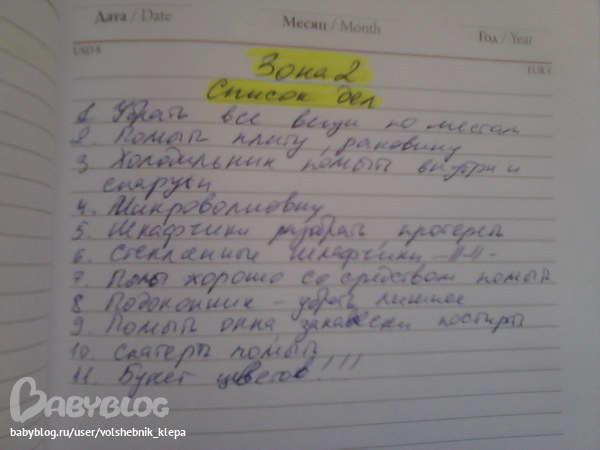 Дата / Date
Месяц / Month
Год / Year
USD $
EUR €
Зона 2
Список дел
1 Убрать все вещи по местам
2. Помыть плиту, раковину
3 Холодильник помыть внутри и
снаружи
4. Микроволновку
5. Шкафчики разобрать, протереть
6. Стеклянные шкафчики -//-//-
7. Полы хорошо со средством помыть
8 Подоконник - убрать лишнее
9 Помыть окна, занавески постирать
10. Скатерть помыть
11. Букет цветов!!!
BABYBLOG
babyblog.ru/user/volshebnik_klepa